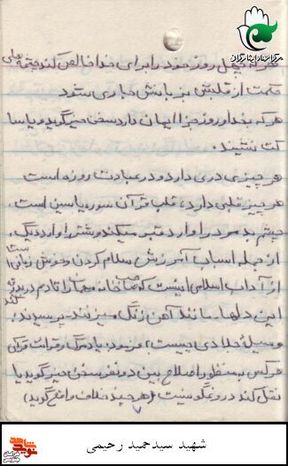 مرکز اسناد ایثارگران
هرکه چهل روز خود را برای خدا خالص کند چشمه های
حکمت از قلبش بر زبانش جاری شود
هرکه بخدا و روز جزا ایمان دارد سخن خیر گوید و یا سا
کت نشیند.
هر چیزی دری دارد و در عبادت روزه است
هر چیز قلبی دارد، قلب قرآن سوره یاسین است.
چشم بد مرد را وارد قبر میکند و شتر را وارد دیگ.
از جمله اسباب آمرزش سلام کردن و خوش زبانی است
از آداب اسلامی اینست که صاحب خانه مهمان را تا دم در بدرقه کند
این دلها مانند آهن زنگ میزنند. پرسیدند،
وسیله جلادی چیست، فرمود، یاد مرگ و قرائت قرآن
هرکس به منظور اصلاح بین دو نفر سخن خیر گوید یا
نقل کند دروغگو نیست (هر چند خلاف واقع گوید)
۷
شهید سیدحمید رحیمی